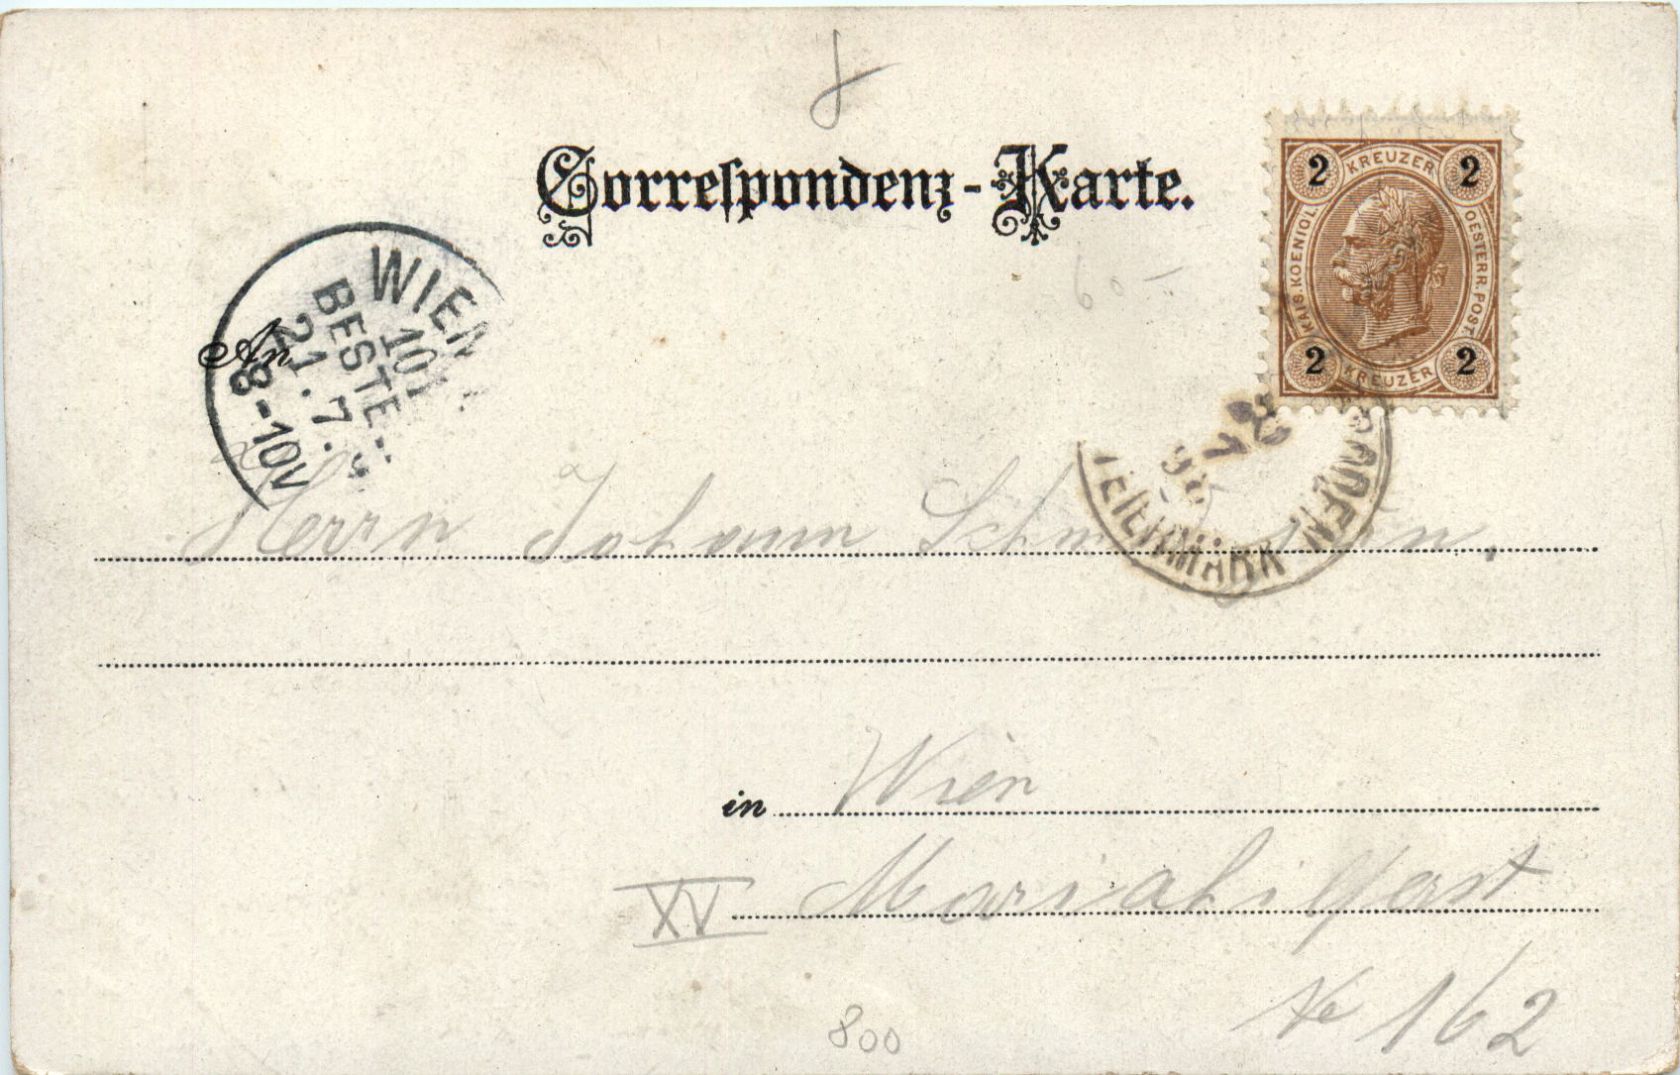 Correspondenz-Karte.
2 KREUZER 2
KAIS. KOENIGL.
OESTERR. POST.
2 KREUZER 2
WIEN
101
BESTE
21.7.
8-10V
An
60-
20
7
98
TEIERMARK
Herrn Johann
in Wien
XV Mariahilferst
No 162
800